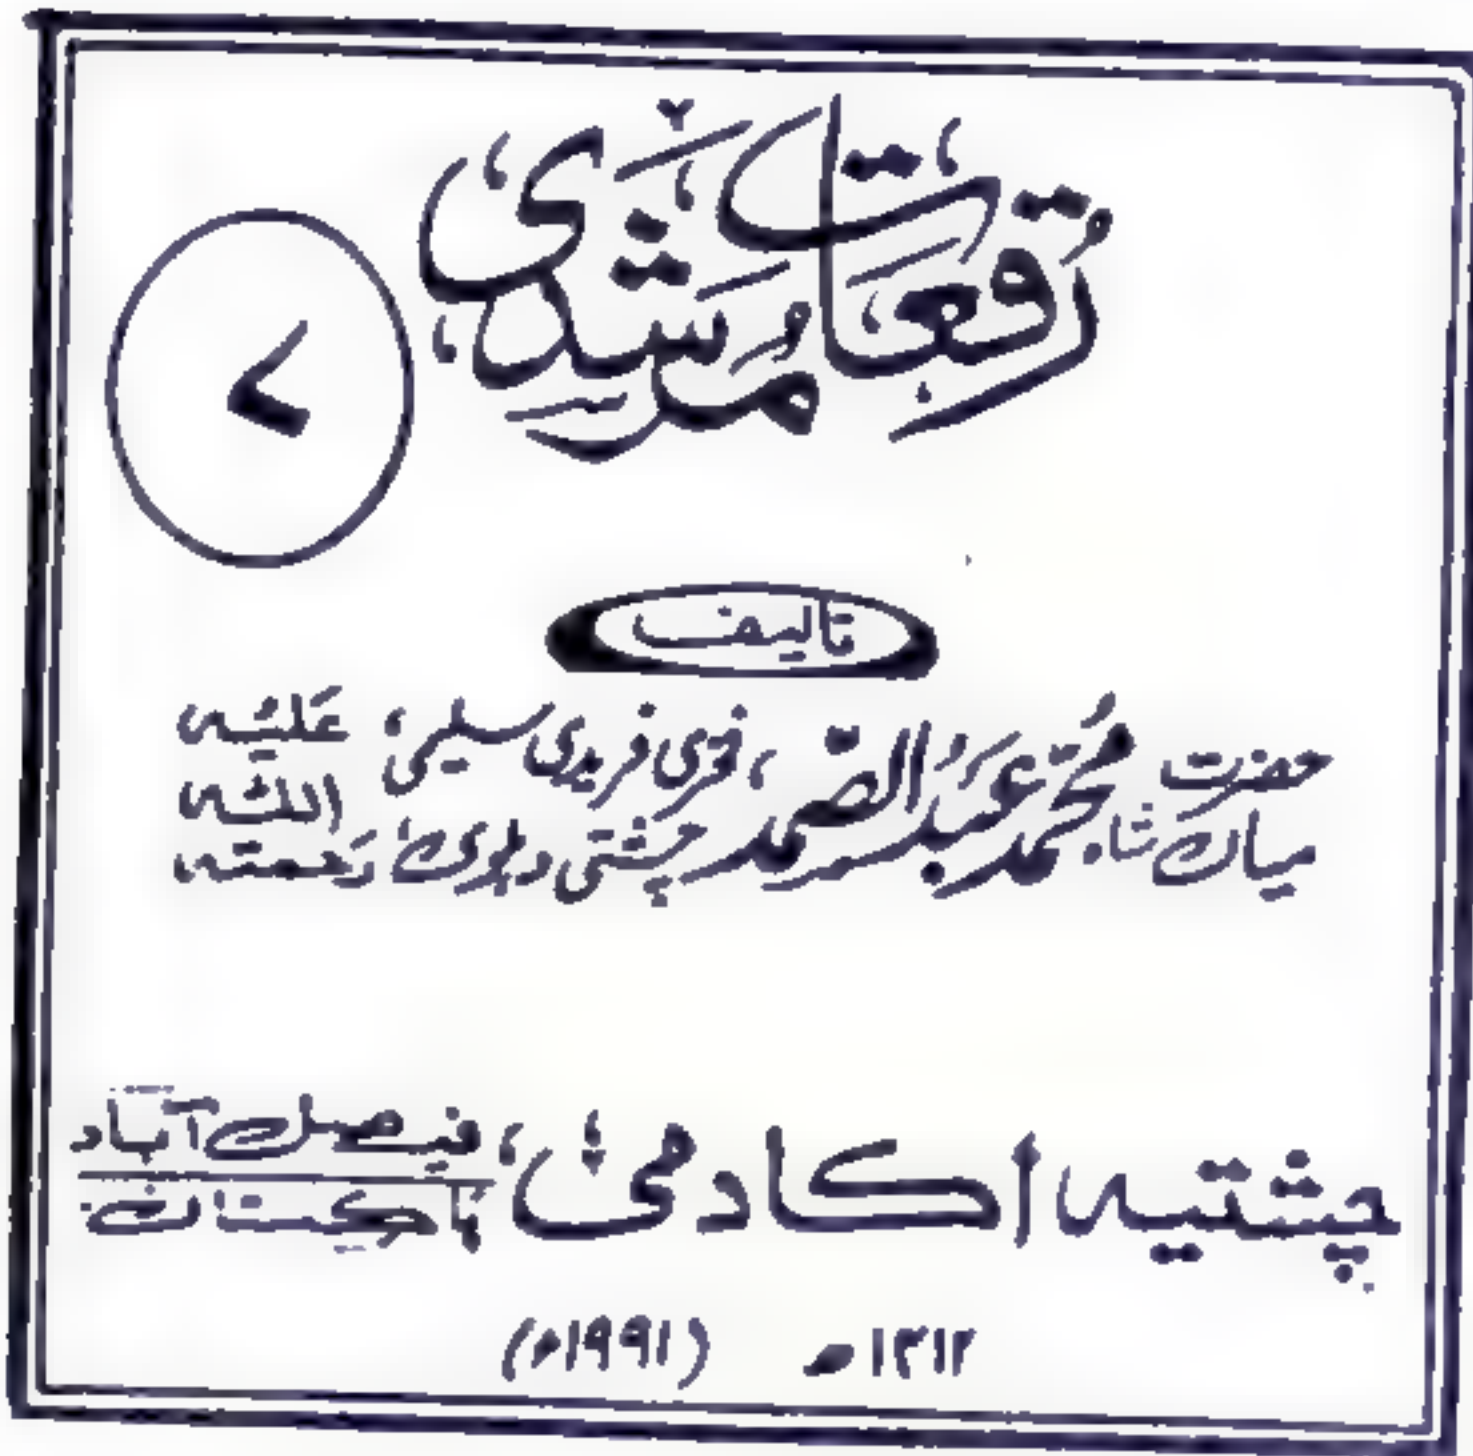 رُقعاتِ
مُرشدی
۷
تالیف
حضرت میاں شاہ مُحمّد عَبدُ الصّمد، فخری فریدی سلیمی، چشتی دہلوی رَحمتہ اللّٰہ عَلَیْہ
چشتیہ اکادمی، فیصل آباد
پاکستان
۱۴۱۲ھ (۱۹۹۱ء)